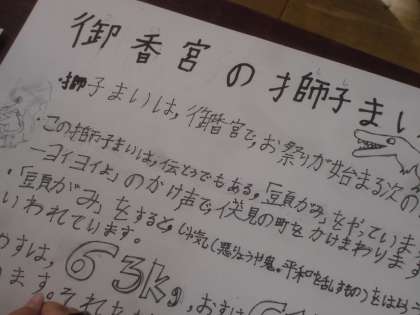 御香宮の獅子まい
・獅子まいは,御香宮で,お祭りが始まる次の
・この獅子まいは,伝とうでもある,「頭がみ」をやっています
ーヨイヨイよ」のかけ声で,伏見の町をかけまわります
・「頭がみ」をすると,じゃ気(悪りょうや鬼。平和を乱すもの)をはらう
いわれています。
すは,63kg,おすは6
ます。それも